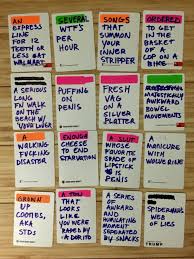 AN
EXPRESS
LINE FOR 12
TEETH OR
LESS @AT
WALMART
SEVERAL
WTF'S
PER
HOUR
SONGS
THAT
SUMMON
YOUR
INNER
STRIPPER
ORDERED
TO GET IN
THE BASKET
OF A COP
ON A
BIKE
A SERIOUS
LONG
FN WALK
ON THE
BEACH W/
YOUR LOVER
PUFFING
ON
PENIS
FRESH
VAG ON
A
SILVER
PLATTER
AWKWARD
BOWEL
MOVEMENTS
A
WALKING
FUCKING
DISASTER
ENOUGH
CHEESE
TO END
STARVATION
A SLUT
WHOSE
FAVORITE
SHADE OF
LIPSTICK
IS
PENIS
A
MANICURE
WITH
WOLVERINE
GROWN
UP
COOTIES,
AKA
STDS
A TAN
THAT
LOOKS
LIKE
YOU WERE
RAPED BY
A DORITO
A SERIES OF
AWKWARD
AND
HUMILIATING
MOMENTS
SEPARATED
BY SNACKS
SPIDERMANS
WEB
OF LIES
TRUMP